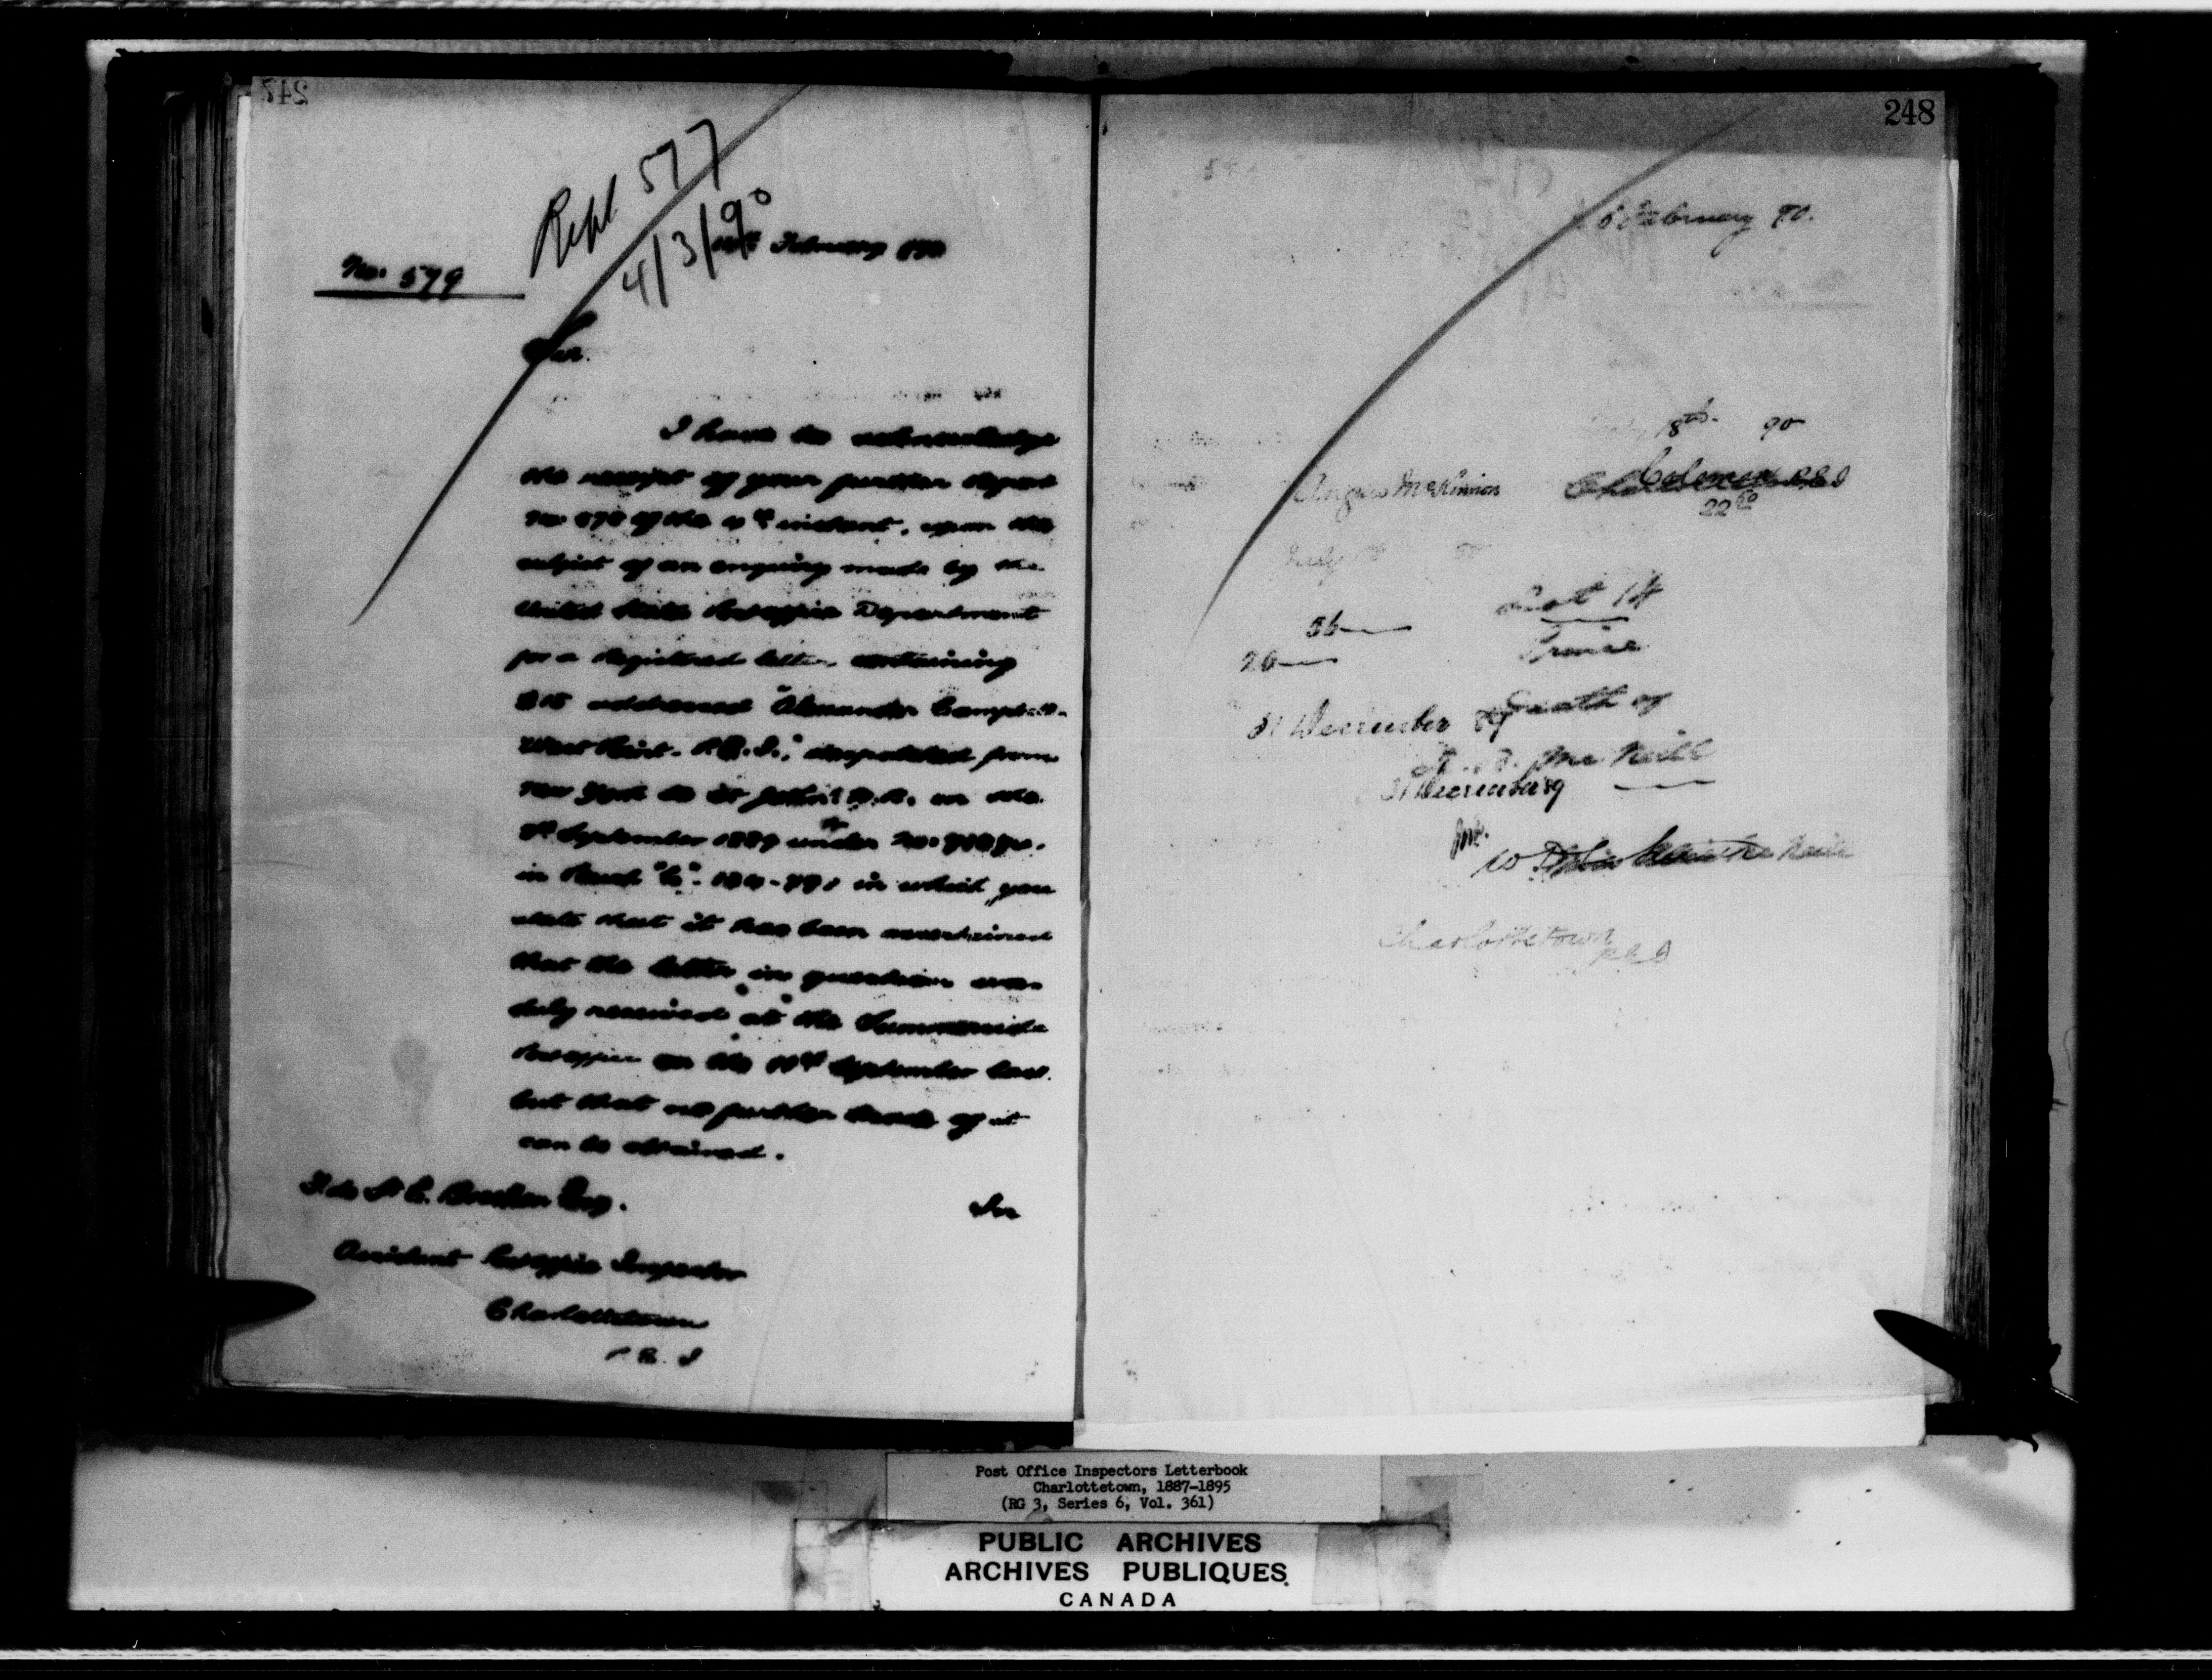 247
Repl 577
4/3/90
February 1890
No. 579
Sir.
I have to acknowledge
the receipt of your further report
of the 4th instant, upon the
subject of an enquiry made by the
United States Post office Department
for a Registered letter, containing
$15 addressed "Alexander Campbell
West Point. P.E.I.", despatched from
New York to St John N.B. on the
September 1889 under No.
in which you
state that it has been ascertained
that the letter in question was
duly received at the Summerside
Post office on the 11th September last.
but that no further trace of it
can be obtained.
F. de St C. Brecken Esq.
In
Assistant Post office Inspector
Charlottetown
P. E. I
248
February 90.
18th 90
Angus McKinnon
Coleman P.E.I
22
July
56
Lot 14
20
Prince
31 December 89
Death of
McNeill
31 December 89
Charlottetown
P.E.I
Post Office Inspectors Letterbook
Charlottetown, 1887-1895
(RG 3, Series 6, Vol. 361)
PUBLIC ARCHIVES
ARCHIVES PUBLIQUES
CANADA